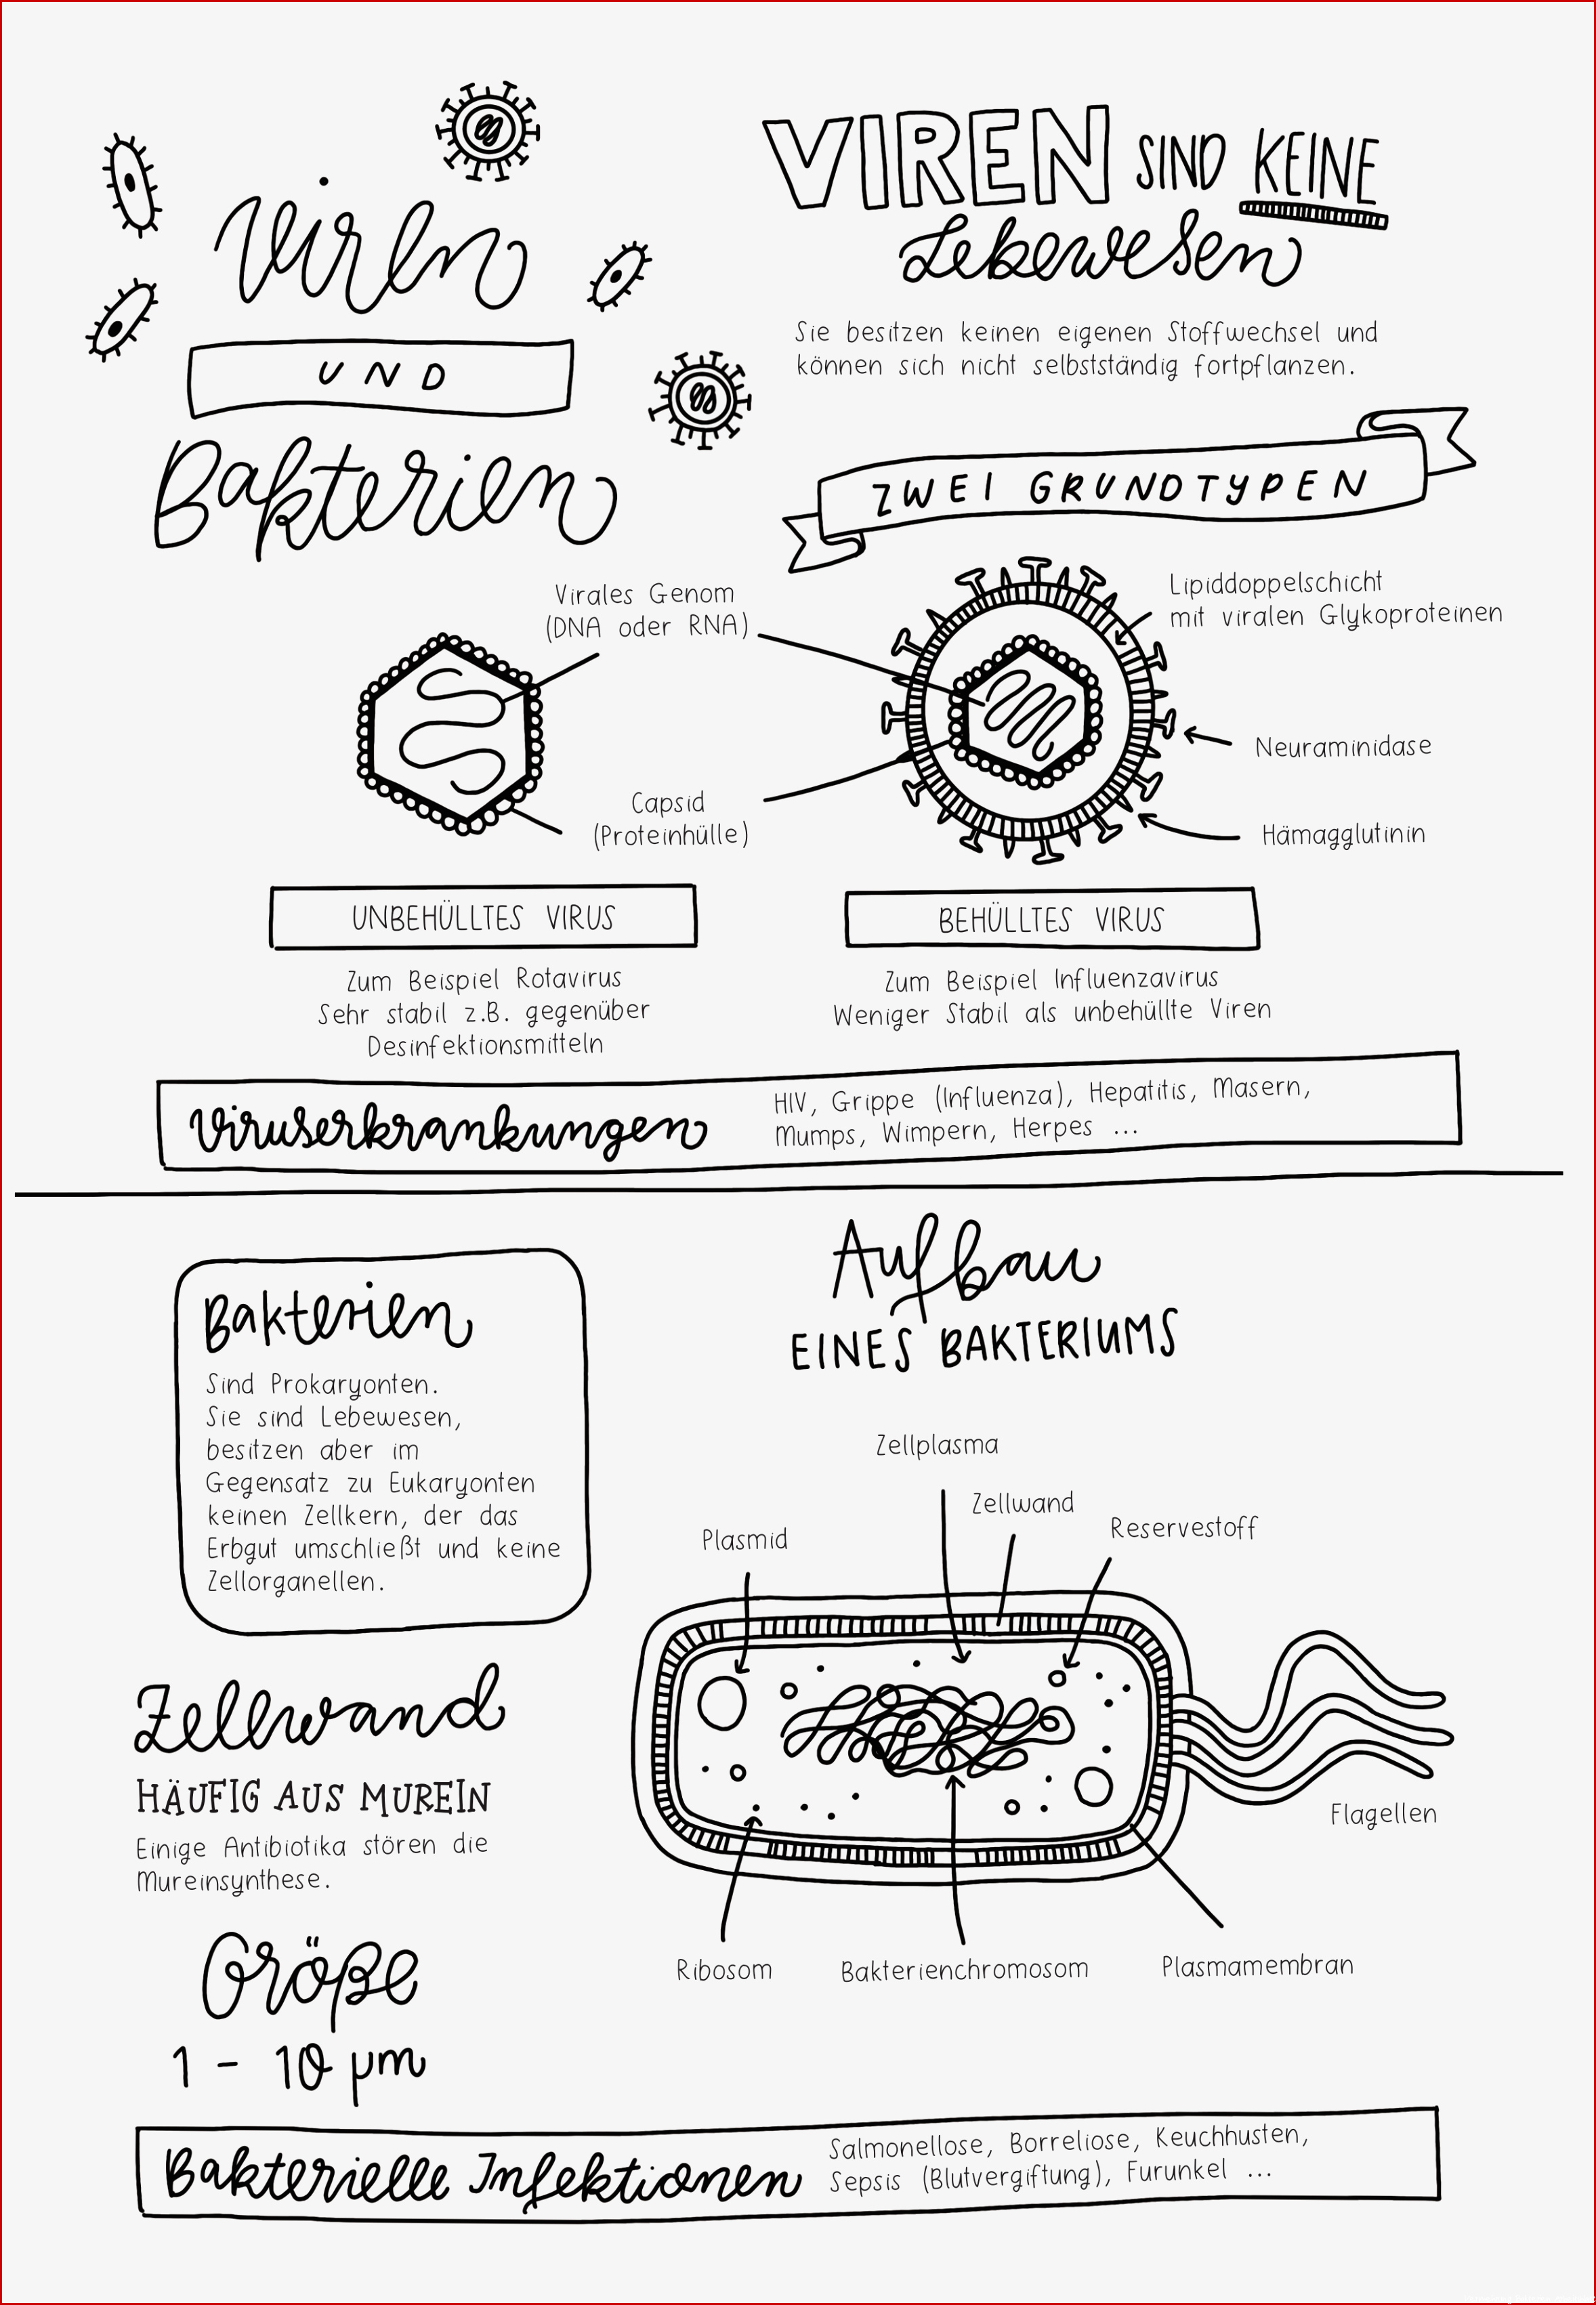 Viren
UND
Bakterien
VIREN SIND KEINE
Lebewesen
Sie besitzen keinen eigenen Stoffwechsel und
können sich nicht selbstständig fortpflanzen.
ZWEI GRUNDTYPEN
Virales Genom
(DNA oder RNA)
Lipiddoppelschicht
mit viralen Glykoproteinen
Neuraminidase
Capsid
(Proteinhülle)
Hämagglutinin
UNBEHÜLLTES VIRUS
Zum Beispiel Rotavirus
Sehr stabil z.B. gegenüber
Desinfektionsmitteln
BEHÜLLTES VIRUS
Zum Beispiel Influenzavirus
Weniger Stabil als unbehüllte Viren
Viruserkrankungen
HIV, Grippe (Influenza), Hepatitis, Masern,
Mumps, Wimpern, Herpes ...
Bakterien
Sind Prokaryonten.
Sie sind Lebewesen,
besitzen aber im
Gegensatz zu Eukaryonten
keinen Zellkern, der das
Erbgut umschließt und keine
Zellorganellen.
Aufbau
EINES BAKTERIUMS
Zellplasma
Zellwand
Reservestoff
Plasmid
Flagellen
Ribosom
Bakterienchromosom
Plasmamembran
Zellwand
HÄUFIG AUS MUREIN
Einige Antibiotika stören die
Mureinsynthese.
Größe
1 - 10 µm
Bakterielle Infektionen
Salmonellose, Borreliose, Keuchhusten,
Sepsis (Blutvergiftung), Furunkel ...